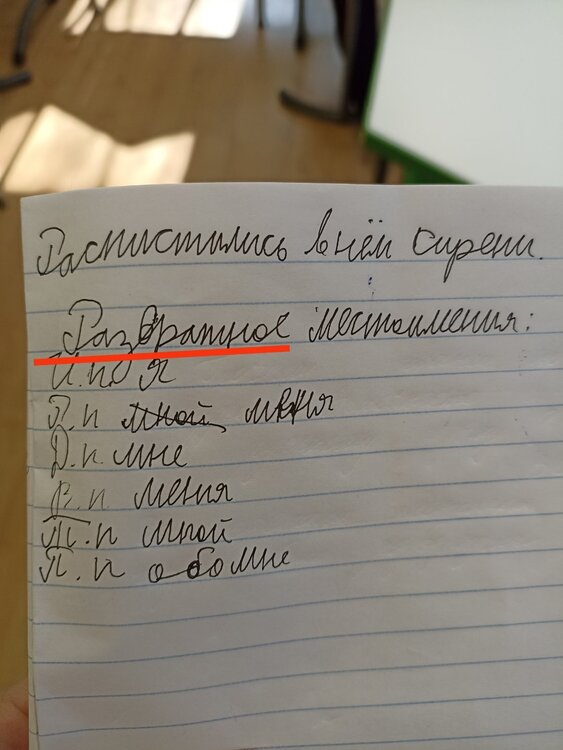 Распистились в нём сирени.
Развратное местоимения:
И.п Я
Р.п мной меня
Д.п мне
В.п меня
Т.п мной
П.п обо мне